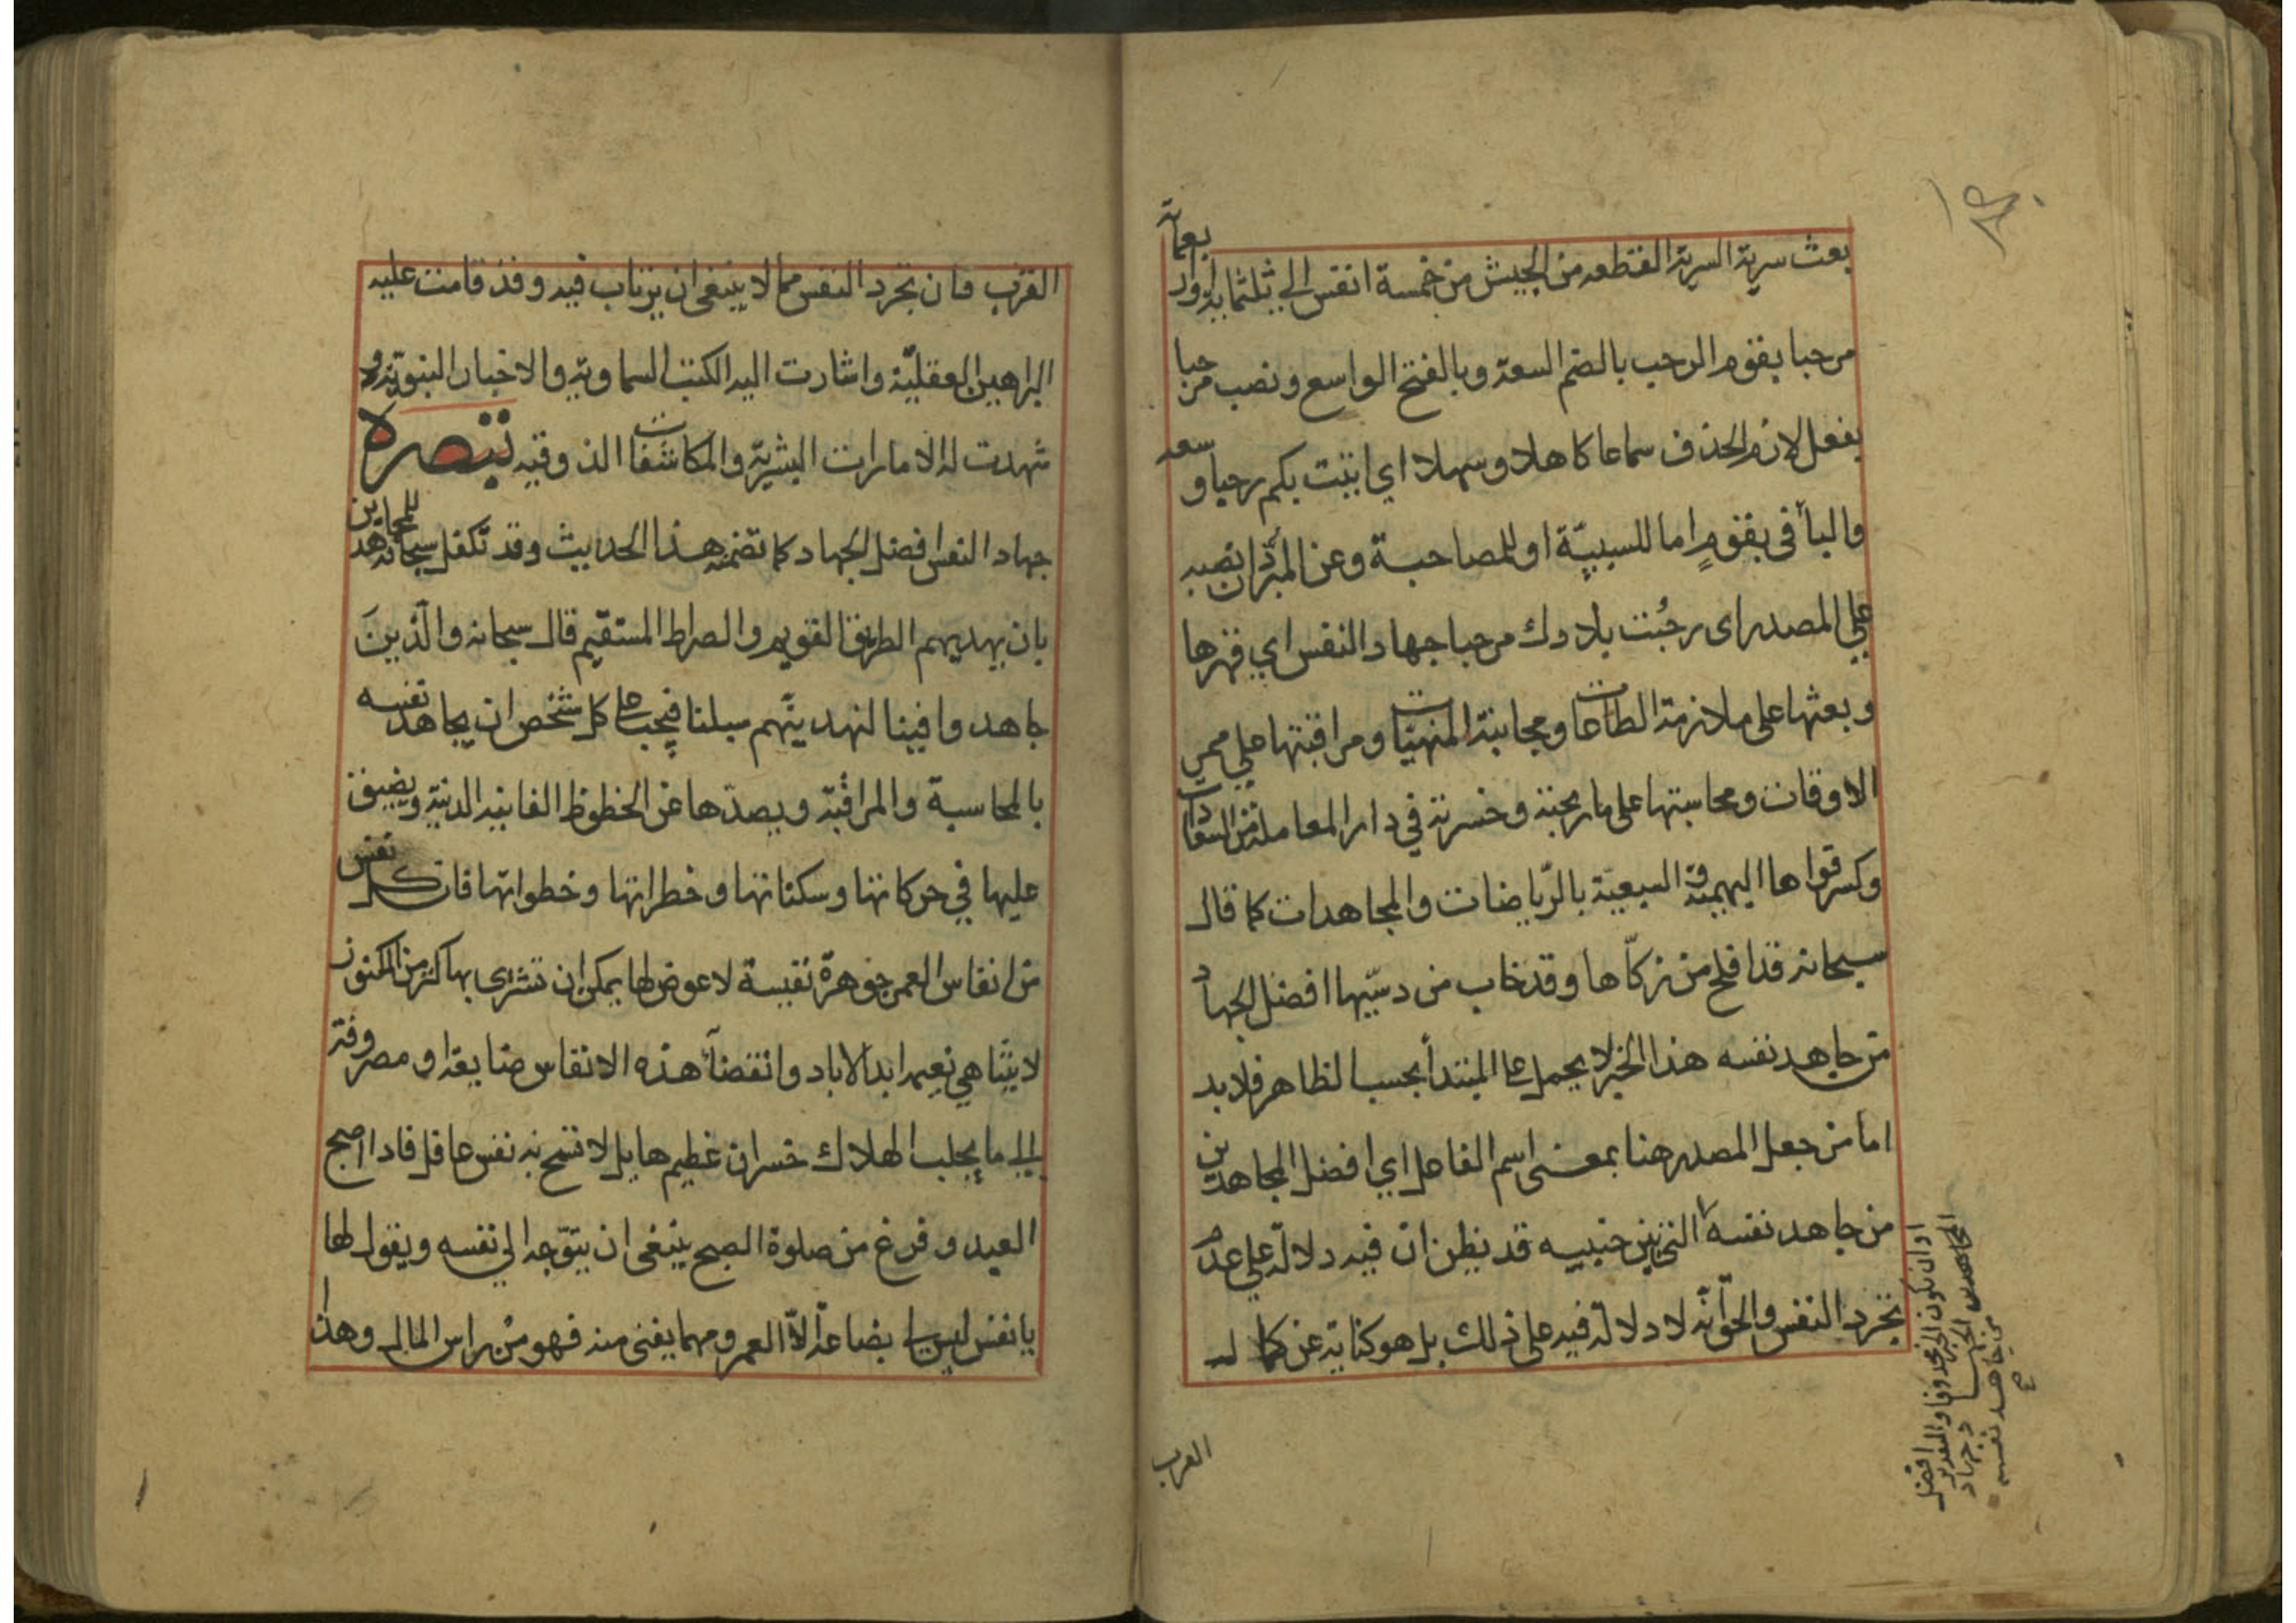 بعث سرية السرية القطعه من الجيش من خمسة انفس الى ثلثماية او اربعمأية
مرحبا بقوم الرحب بالضم السعة وبالفتح الواسع ونصب مرحبا
بفعل لازم الحذف سماعا كاهلا وسهلا اي اتيت بكم رحبا و سعه
والبأ في بقومٍ اما للسببيّة او للمصاحبة وعن المبرّد ان نصبه
على المصدر اى رحُبت بلادك مرحبا جهاد النفس اي قهرها
وبعثها على ملازمة الطاعات ومجانبة المنهيات ومراقبتها على ممر
الاوقات ومحاسبتها على ما ربحته وخسرته في دار المعاملة من السعادات
وكسر قواها البهيمية و السبعيّة بالرّياضات والمجاهدات كما قال
سبحانه قد افلح من زكّاها وقد خاب من دسّيها افضل الجهاد
من جاهد نفسه هذا الخبر لا يحمل على المبتدأ بحسب الظاهر فلا بد
اما من جعل المصدر هنا بمعنى اسم الفاعل اي افضل المجاهدين
من جاهد نفسه التي بين جنبيه قد يظن ان فيه دلالة على عدم
تجرد النفس والحق أنّه لا دلالة فيه على ذلك بل هو كناية عن كمال
او ان يكون الخبر محذوفا والتقدير افضل
المجاهدين الجهاد جهاد
من جاهد نفسه
ع
العرب
القرب فان تجرد النفس مما لا ينبغى ان يرتاب فيه وقد قامت عليه
البراهين العقليّة واشارت اليه الكتب السماوية والاخبار النبوية و
شهدت له الامارات البشرية والمكاشفات الذوقيه تبصرة
جهاد النفس افضل الجهاد كما تضمنه هذا الحديث وقد تكفل سبحانه للمجاهدين
بان يهديهم الطريق القويم والصراط المستقيم قال سبحانه والّذينَ
جاهدوا فينا لنهدينّهم سبلنا فيجب على كل شخص ان يجاهد نفسه
بالمحاسبة والمراقبة ويصدّها عن الحظوظ الفانيه الدنية ويضيق
عليها في حركاتها وسكناتها وخطراتها وخطواتها فان كل نفس
من انفاس العمر جوهرة نفيسة لا عوض لها يمكن ان تشترى بها كنز من الكنوز
لا يتناهي نعيمه ابد الاباد وانقضأ هذه الانفاس ضايعة او مصروفة
الى ما يجلب الهلاك خسران عظيم هايل لا تسمح به نفس عاقل فاذا اصبح
العبد وفرغ من صلوة الصبح ينبغى ان يتوّجه الي نفسه ويقول لها
يا نفس ليس لي بضاعة الاّ العمر ومهما يفنى منه فهو من راس المال وهذا